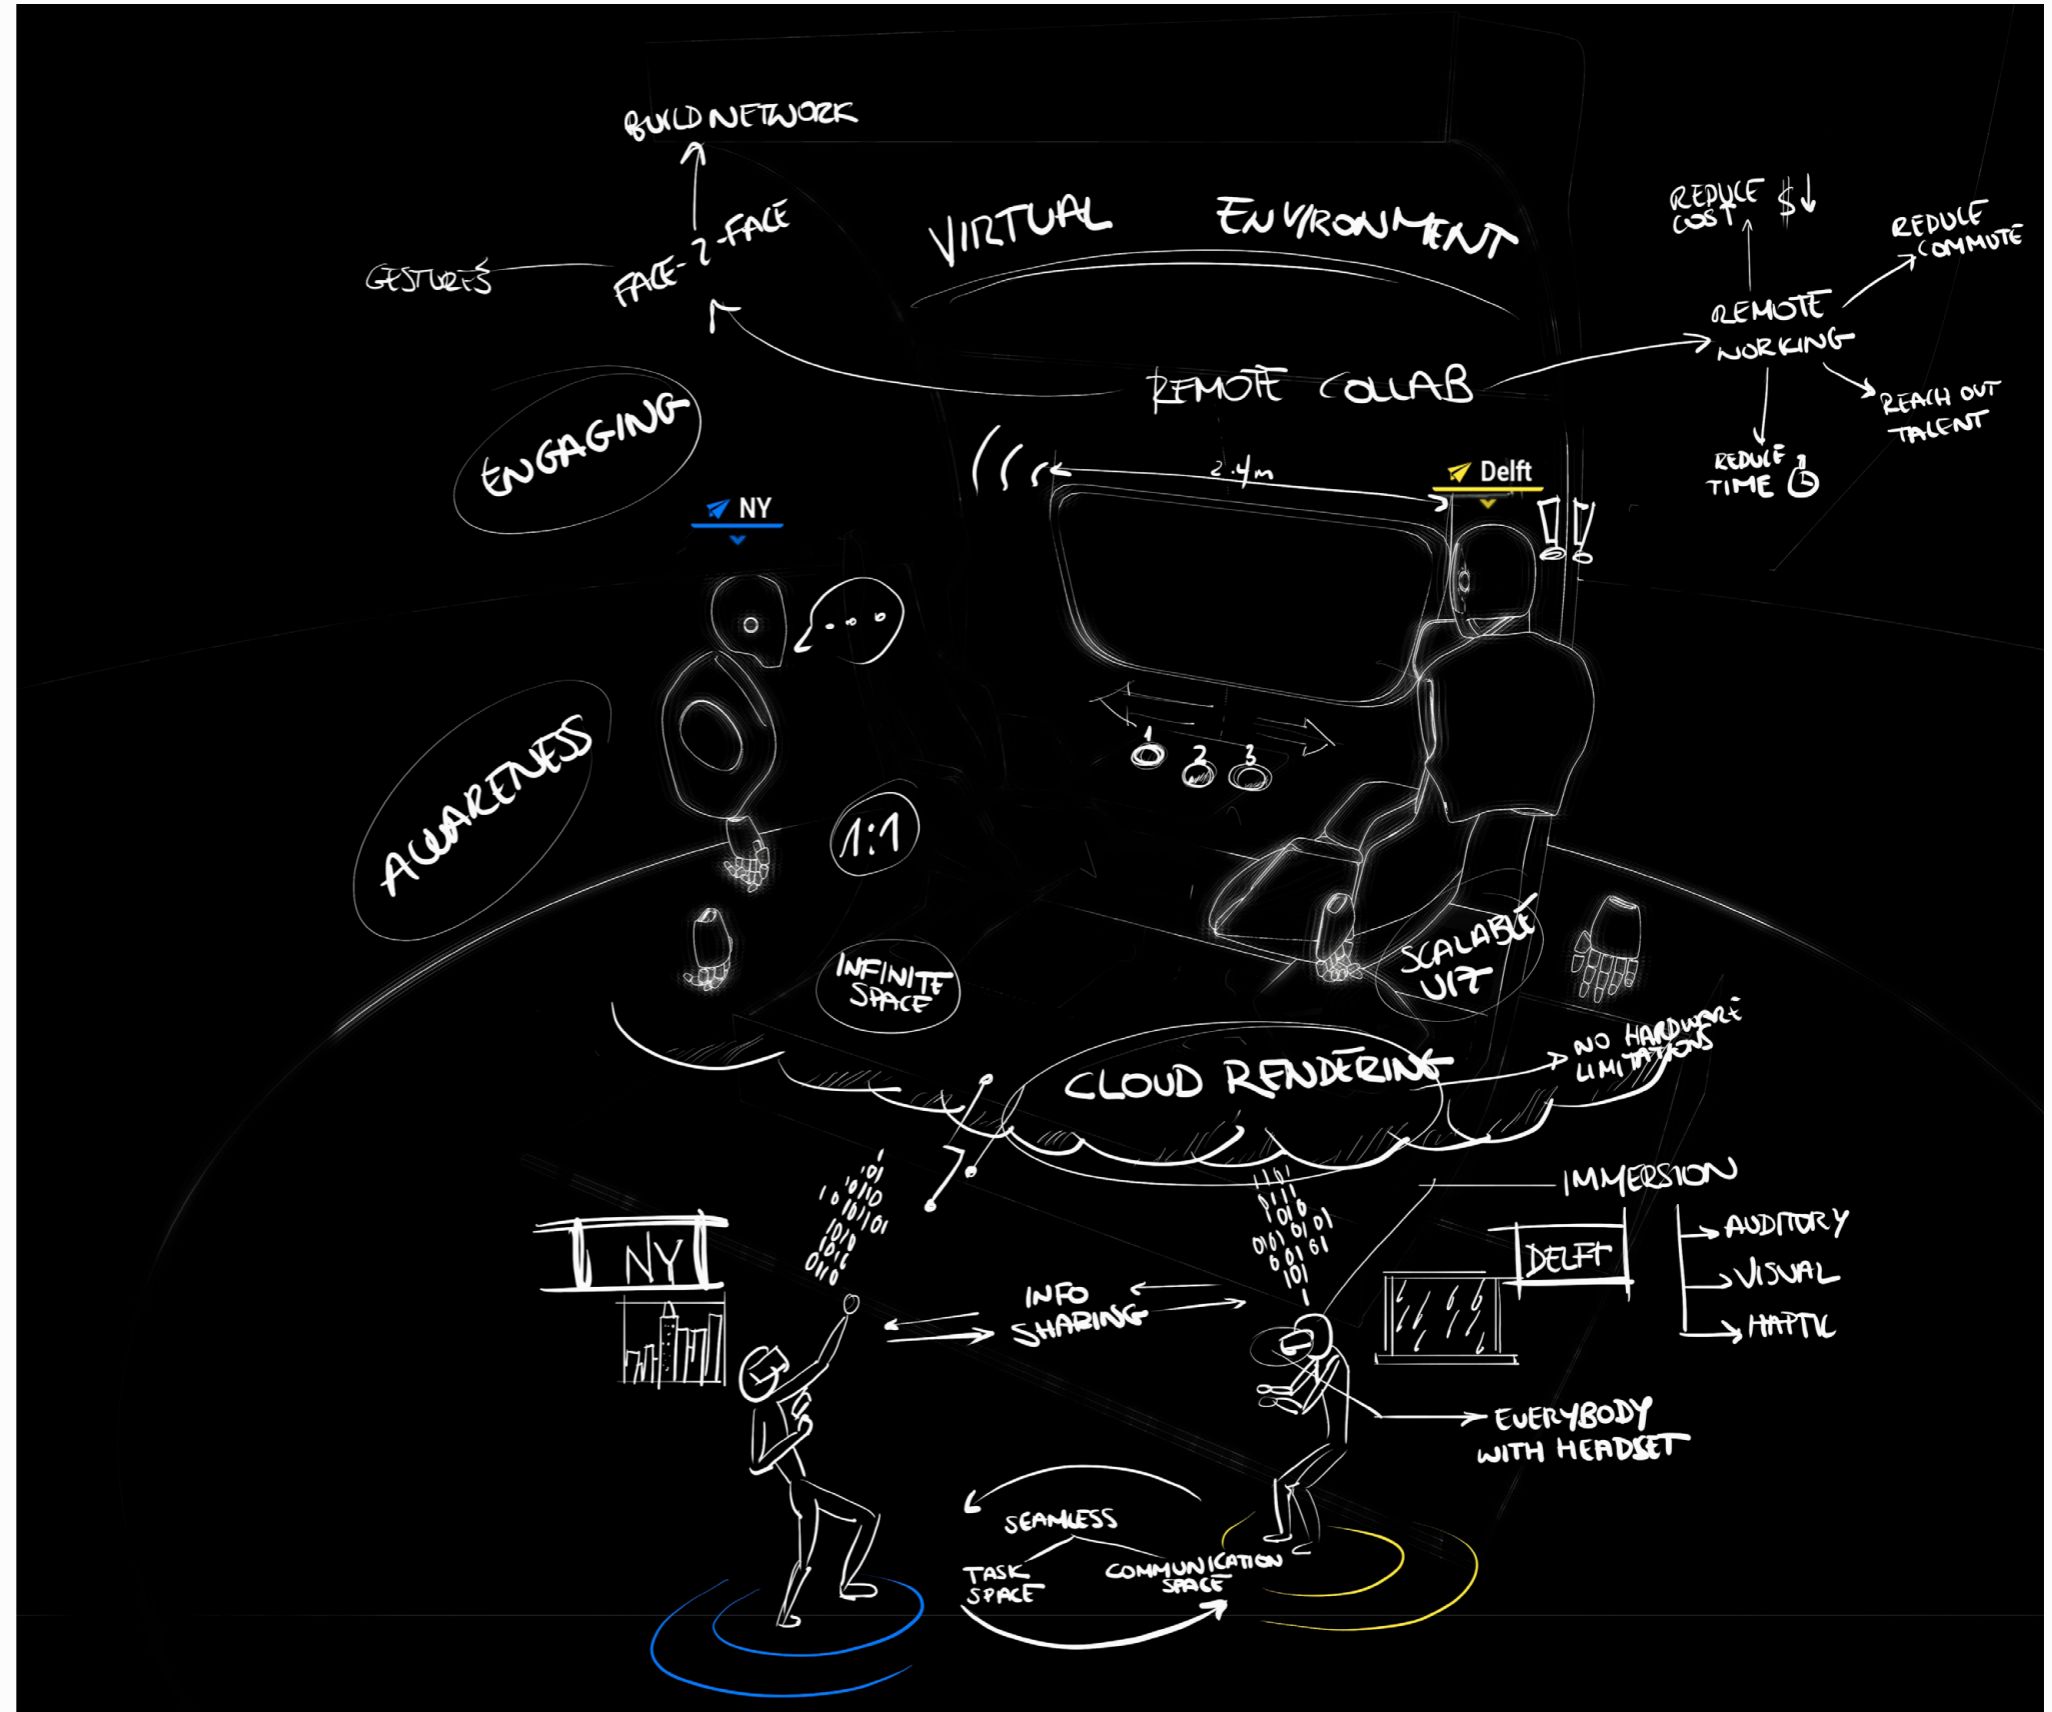 BUILD NETWORK
GESTURES
FACE-2-FACE
VIRTUAL ENVIRONMENT
REDUCE
COST $
REDUCE
COMMUTE
REMOTE
WORKING
REACH OUT
TALENT
REDUCE
TIME
REMOTE COLLAB
ENGAGING
2.4m
Delft
NY
!!
...
1 2 3
AWARENESS
1:1
INFINITE
SPACE
SCALABLE
NO HARDWARE
LIMITATIONS
CLOUD RENDERING
1
101
1 0 10110
101101
1010
1016
0110
1101
0111
1010
0101 01 01
0 01 01
101
1
IMMERSION
AUDITORY
VISUAL
HAPTIC
NY
DELFT
INFO
SHARING
EVERYBODY
WITH HEADSET
SEAMLESS
TASK
SPACE
COMMUNICATION
SPACE